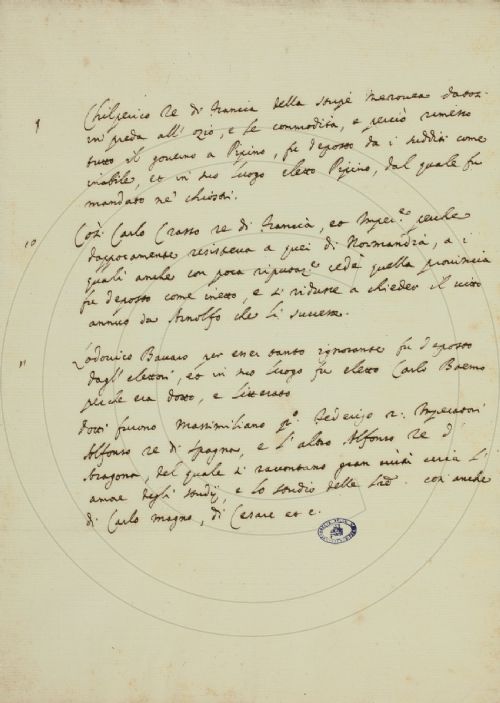 9 Chilperico Re di Francia della stirpe Merovea datosi
in preda all' ozio, e le commodità, e perciò rimesso
tutto il governo a Pipino, fu deposto da i sudditi come
inabile, et in suo luogo eletto Pipino, dal quale fu
mandato ne' chiostri.
10 Così Carlo Crasso re di Francia, et Imper.e perche
dapocamente resisteva a quei di Normandia, a i
quali anche con poca riputaz.e cedè quella provincia
fu deposto come inetto, e si ridusse a chieder il vitto
annuo da Arnolfo che li successe.
11 Lodovico Bavaro per esser tanto ignorante fu deposto
dagl' elettori, et in suo luogo fu eletto Carlo Boemo
perche era dotto, e litterato
dotti furono Massimiliano pr.o Federigo 2: Imperatori
Alfonso re di Spagna, e l' altro Alfonso re d'
Aragona, del quale si raccontano gran cose circa l'
amore degli studij, e lo studio delle così anche
di Carlo magno, di Cesare et c.